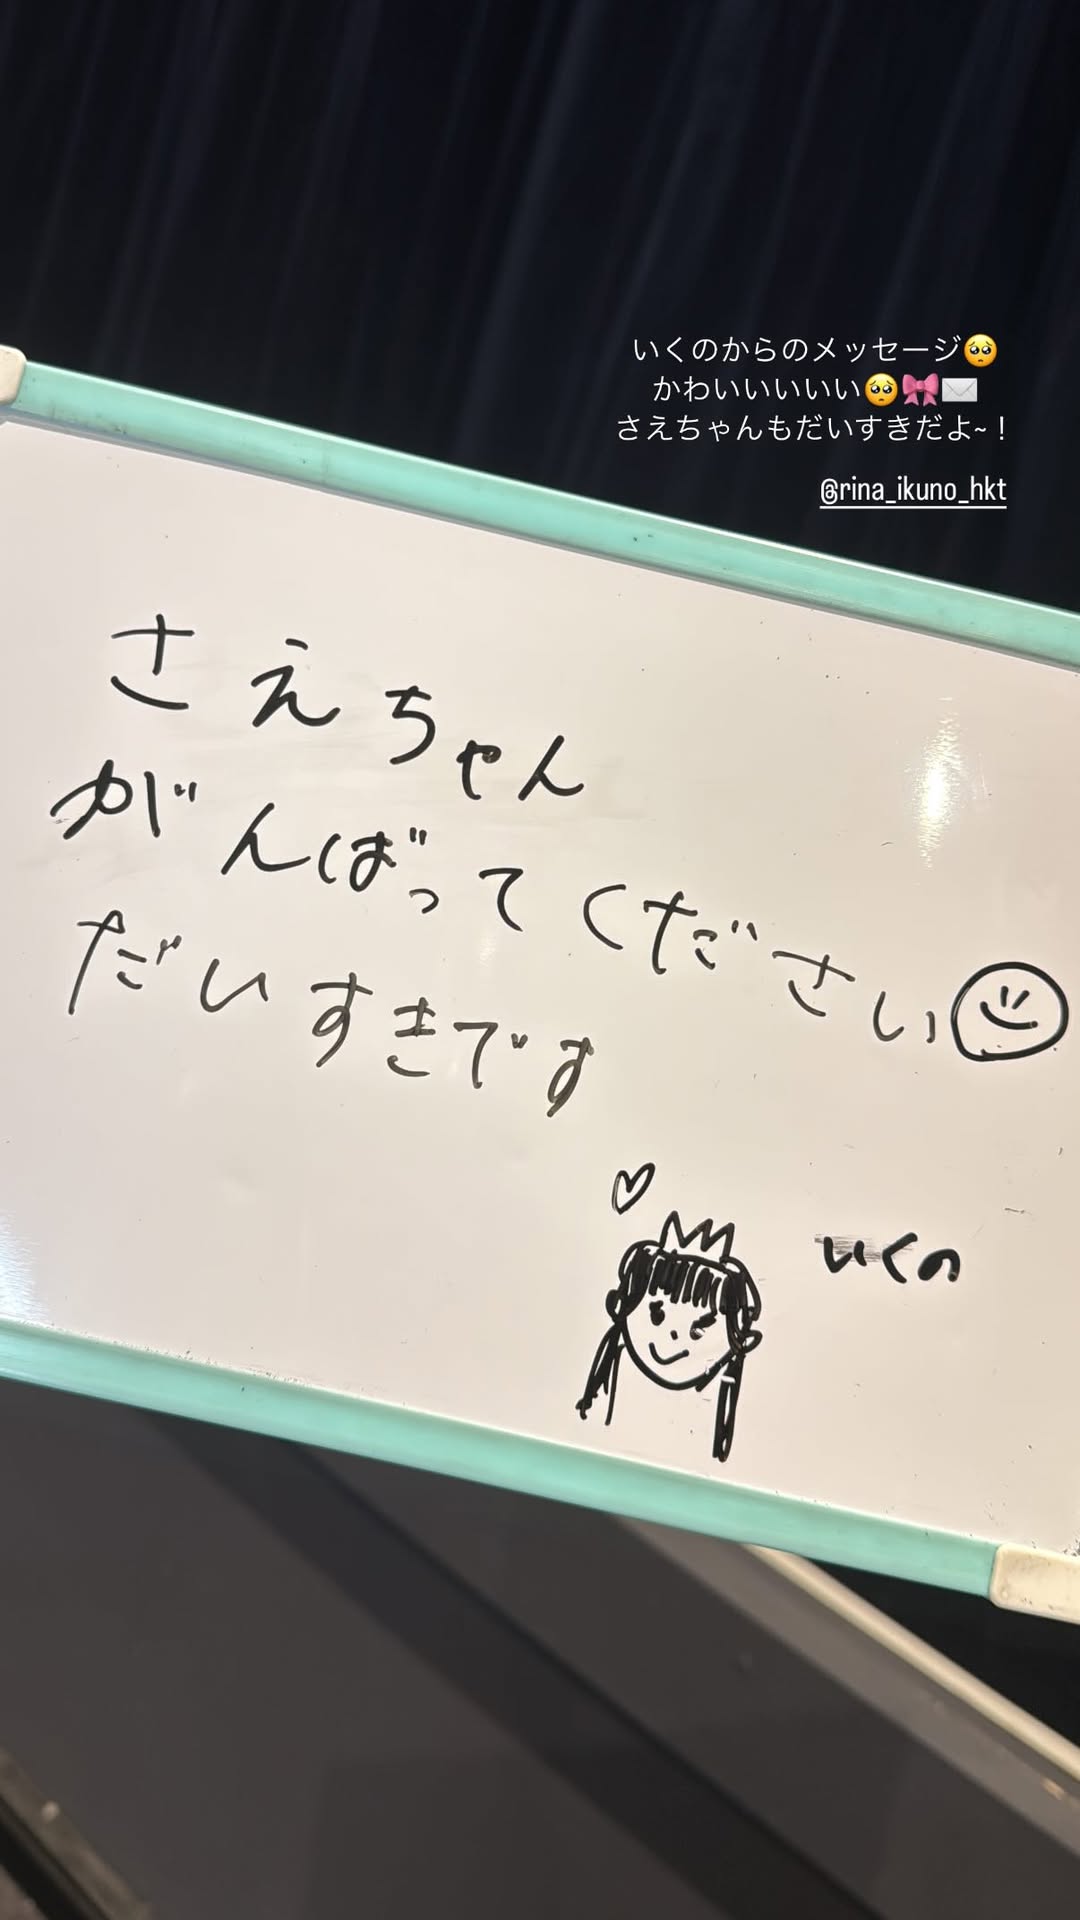 いくのからのメッセージ🥺
かわいいいいい🥺🎀✉️
さえちゃんもだいすきだよ~！
@rina_ikuno_hkt
さえちゃん
がんばってください
だいすきです
いくの